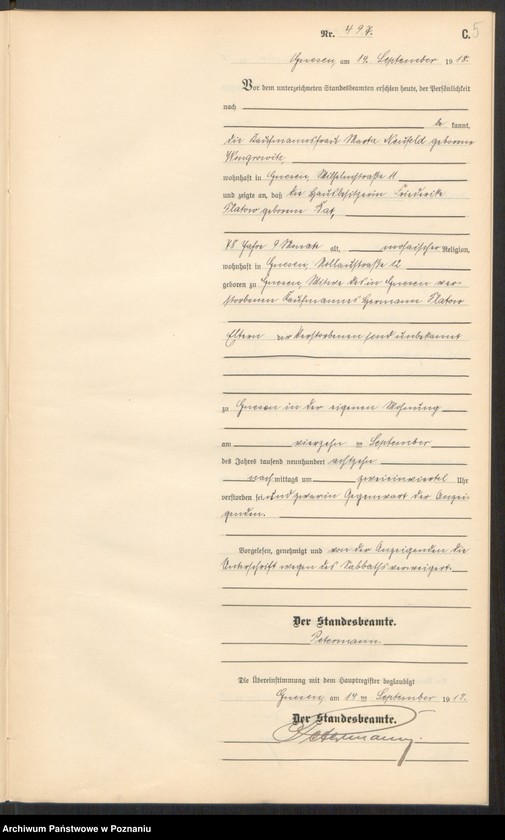 Nr. 497.
C. 5
Gnesen, am 14. September 1918.
Vor dem unterzeichneten Standesbeamten erschien heute, der Persönlichkeit
nach
be kannt,
die Kaufmannsfrau Marta Neufeld geborene
wohnhaft in Gnesen, Wilhelmstraße 11
und zeigte an, daß die Hausbesitzerin Friederike
Flatow geborene
78 Jahre 9 Monate alt, mosaischer Religion,
wohnhaft in Gnesen, straße 12
geboren zu Gnesen, Witwe des in Gnesen ver-
storbenen Kaufmannes Hermann Flatow
Eltern der Verstorbenen sind unbekannt
zu Gnesen in der eigenen Wohnung
am vierzehn ten September
des Jahres tausend neunhundert achtzehn
nachmittags um zweieinviertel Uhr
verstorben sei. Und zwar in Gegenwart der Anzei-
genden.
Vorgelesen, genehmigt und von der Anzeigenden die
Unterschrift wegen des Sabbaths verweigert.
Der Standesbeamte.
Petermann.
Die Übereinstimmung mit dem Hauptregister beglaubigt
Gnesen, am 14 ten September 1918.
Der Standesbeamte.
Petermann.
Archiwum Państwowe w Poznaniu